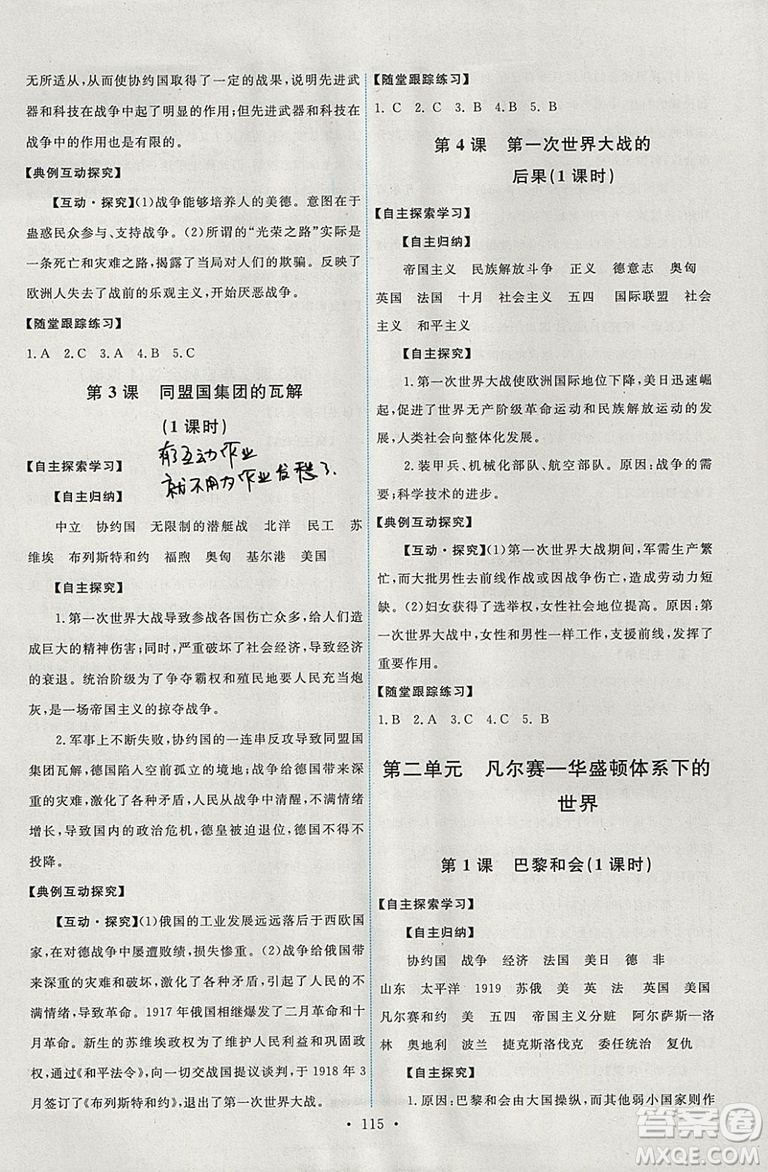 无所适从，从而使协约国取得了一定的战果，说明先进武
器和科技在战争中起了明显的作用；但先进武器和科技在
战争中的作用也是有限的。
【典例互动探究】
【互动·探究】(1)战争能够培养人的美德。意图在于
蛊惑民众参与、支持战争。(2)所谓的“光荣之路”实际是
一条死亡和灾难之路，揭露了当局对人们的欺骗。反映了
欧洲人失去了战前的乐观主义，开始厌恶战争。
【随堂跟踪练习】
1.A 2.C 3.A 4.B 5.C
第 3 课 同盟国集团的瓦解
(1 课时)
有互动作业
就不用为作业发愁了.
【自主探索学习】
【自主归纳】
中立 协约国 无限制的潜艇战 北洋 民工 苏
维埃 布列斯特和约 福煦 奥匈 基尔港 美国
【自主探究】
1.第一次世界大战导致参战各国伤亡众多，给人们造
成巨大的精神伤害；同时，严重破坏了社会经济，导致经济
的衰退。统治阶级为了争夺霸权和殖民地把人民当炮
灰，是一场帝国主义的掠夺战争。
2.军事上不断失败，协约国的一连串反攻导致同盟国
集团瓦解，德国陷入空前孤立的境地；战争后期，战争导致
深重的灾难和破坏，德国人民从战争中清醒，厌战、反战
情绪增长，导致国内的政治危机，德皇被迫退位，德国不得不
投降。
【典例互动探究】
【互动·探究】(1)俄国的工业发展远远落后于西欧国
家，在对德战争中屡遭败绩，损失惨重。(2)战争给俄国带
来深重的灾难和破坏，严重激化了社会矛盾，引起了人民
的强烈不满，导致革命。1917 年俄国相继爆发了二月革命和十
月革命。新生的苏维埃政权为了维护人民利益和巩固政
权，通过《和平法令》，向一切交战国提议谈判，于 1918 年 3
月签订了《布列斯特和约》，退出了第一次世界大战。
【随堂跟踪练习】
1.C 2.C 3.B 4.B 5.B
第 4 课 第一次世界大战的
后果(1 课时)
【自主探索学习】
【自主归纳】
帝国主义 民族解放斗争 正义 德意志 奥匈
英国 法国 十月 社会主义 五四 国际联盟 社会
主义 和平主义
【自主探究】
1.第一次世界大战使欧洲国际地位下降，美日迅速崛
起，促进了世界无产阶级革命运动和民族解放运动的发
展，人类社会向整体化发展。
2.装甲兵、机械化部队、航空部队。原因：战争的需
要；科学技术的进步。
【典例互动探究】
【互动·探究】(1)第一次世界大战期间，军需生产繁
忙，而男性一般走向前线作战且战争伤亡，造成劳动力短
缺。(2)妇女获得了选举权，社会地位提高。原因：第
一次世界大战中，女性和男性一样工作、支援前线，发挥了
重要作用。
【随堂跟踪练习】
1.B 2.A 3.C 4.C 5.B
第二单元 凡尔赛—华盛顿体系下的
世界
第 1 课 巴黎和会(1 课时)
【自主探索学习】
【自主归纳】
协约国 战争 经济 法国 美日 德 非
山东 太平洋 1919 苏俄 美 英法 英国 美国
凡尔赛和约 美 五四 帝国主义分赃 阿尔萨斯—洛
林 奥地利 波兰 捷克斯洛伐克 委任统治 复仇
【自主探究】
1.原因：巴黎和会由大国操纵，而其他弱小国家则作
115
答案圈
MXQE.COM